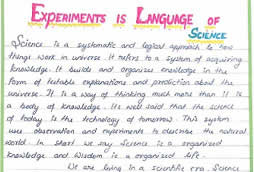 EXPERIMENTS IS LANGUAGE OF
SCIENCE
Science is a systematic and logical approach to how
things work in universe. It refers to a system of acquiring
knowledge. It builds and organizes knowledge in the
form of testable explanations and prediction about the
universe. It is a way of thinking much more than it is
a body of knowledge. Its well said that the science
of today is the technology of tomorrow. This system
uses observation and experiments to describe the natural
world. In short we say Science is a organized
knowledge and Wisdom is a organized life.
We are living in a scientific era. Science